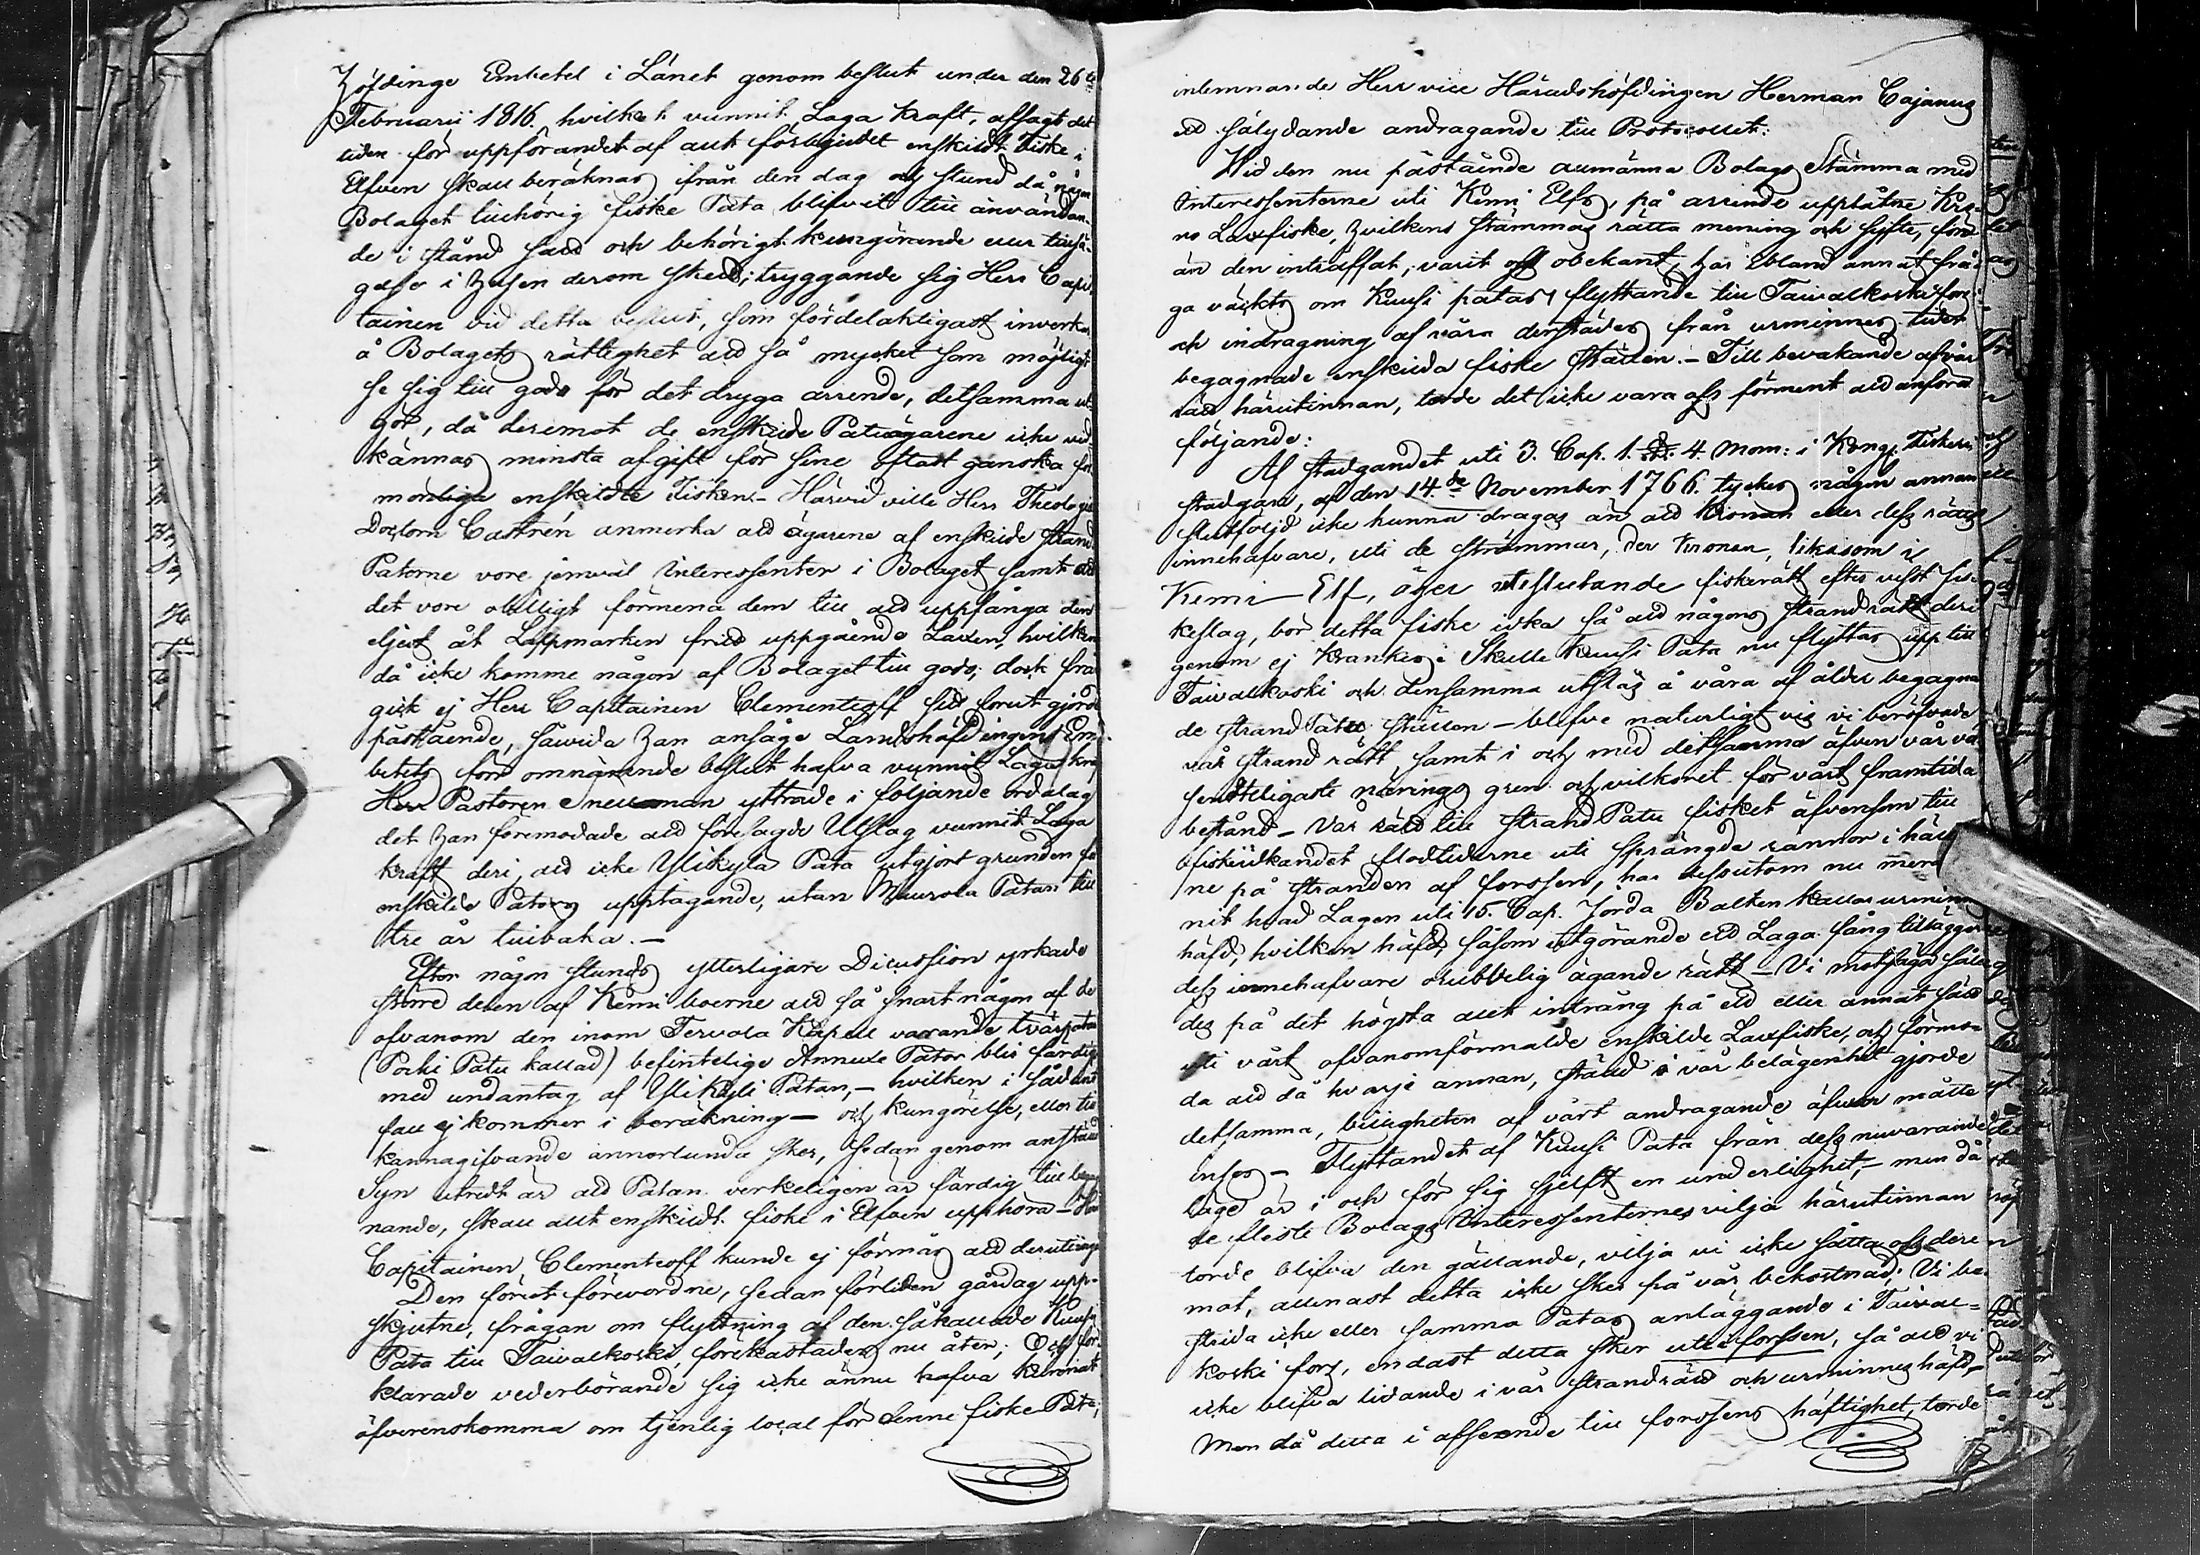 Höfdinge Embetet i Länet genom beslut under den 26te
Februarii 1816. hvilket vunnit Laga kraft, afsagt det
tiden för upphörandet af allt förbjudet enskildt fiske i
Elfven skall beräknas från den dag och stund då någon
Bolaget tillhörig fiske Pata blifvit till användan-
de i stånd satt och behörigt kungörande eller tillsä-
gelse i Elfven derom skedd; tryggande sig Herr Capi-
tainen vid detta beslut, som fördelaktigast inverka
å Bolagets rättighet att så mycket som möjligt
se sig till godo för det dryga arrende, detsamma ut-
gör, då deremot de enskilde Pataägarene icke vid-
kännas minsta afgift för sine oftast ganska för-
monliga enskildta Fisken. - Härvid ville Herr Theologie
Doctorn Castrén anmerka att ägarena af enskilde strand
Patorne vore jemväl Interessenter i Bolaget samt att
det vore obilligt förmena dem till att uppfånga den
eljest åt Lappmarken fritt uppgående Laxen, hvilken
då icke komme någon af Bolaget till godo; dock från
gick ej Herr Capitainen Clementeoff sitt förut gjorde
påstående, såvida han ansåge Landshöfdingens Em-
betets förr omnämnde beslut hafva vunnit Laga kraf
Herr Pastoren Snellman yttrade i följande ordalag
det han förmodade att föresagde Utslag vunnit Laga
kraft deri, att icke Ylikylä Pata utgjort grunden för
enskilde Pators upptagande, utan Muurola Patan till
tre år tillbaka. -
Efter någon stunds ytterligare Discussion yrkade
större delen af Kemi boerne att så snart någon af de
ofvanom den inom Tervola Kapell varande tvärpatan
(Pocki Patu kallad) befintelige Annule Pator blir färdig
med undantag af Ylikyli Patan, - hvilken i sådant
fall ej kommer i beräkning - och kungörelse, eller till
kännagifvande annorlunda sker, sedan genom anställd
Syn utredt är att Patan verkeligen är färdig till begag
nande, skall allt enskildt fiske i Elfven upphöra - Herr
Capitainen Clementeoff kunde ej förmås att derutinnan
Den förut förevordne, sedan förliden gårdag upp-
skjutne, frågan om flyttning af den såkallade Kuusi
Pata till Taivalkoski, förekastades nu åter; Och för-
klarade vederbörande sig icke ännu hafva kunnat
äfverenskomma om tjenlig local för denne fiske Pata,
inlemnande Herr vice Häradshöfdingen Herman Cajanus
ett sålydande andragande till Protocollet:
Wid den nu påstående allmänna Bolags Stämma med
Interessenterne uti Kemi Elfs, på arrende upplåtne Kro-
no Laxfiske, hvilkens stämmas rätta mening och syfte, förr
än den inträffat, varit oss obekant, har ibland annat frå-
ga väckts om Kuusi patas flyttande till Taivalkoski fors
och indragning af våra derstädes från urminnes tider
begagnade enskilda fiske ställen. - Till bevakande af vår
rätt härutinnan, torde det icke vara oss förment att anföra
följande:
Af stadgandet uti 3. Cap. 1. §. 4. Mom: i Kongl. Fiskeri
stadgan, af den 14.de November 1766. tyckes någon annan
slutföljd icke kunna dragas än att Kronan eller dess rätts
innehafvare, uti de strömmar, der Kronan, likasom i
Kemi Elf, äger uteslutande fiskerätt efter visst fis-
keslag, bör detta fiske idka så att någons strandrätt deri
genom ej kränkes: Skulle Kuusi Pata nu flyttas upp till
Taivalkoski och densamma utslås å våra af ålder begagna
de strand Patu ställen - blefve naturligt vis vi beröfvade
vår strand rätt, samt i och med detsamma äfven vår vä
sendteligaste närings gren och vilkoret för vårt framtida
bestånd - Vår rätt till strand Patu fisket äfvensom till
fiskidkandet flodtiderne uti sprängda rännor i häll
ne på stranden af forssen, har dessutom nu mera
nit hvad Lagen uti 15. Cap. Jorda Balken kallar urminn
häfd, hvilken häfd, såsom utgörande ett Laga fång tillägger
dess innehafvare orubbelig ägande rätt - Vi motsäga såle
des på det högsta allt intrång på ett eller annat sätt
uti vårt ofvanomförmälde enskilde Laxfiske, och förmo-
da att då hvarje annan, ställd i vår belägenhet gjorde
detsamma, billigheten af vårt andragande äfven måtte
inses - Flyttandet af Kuusi Pata från dess nuvarande
läge är i och för sig sjelft en underlighet, - men då
de fleste Bolags Interessenternes vilja härutinnan
torde blifva den gällande, vilja vi icke sätta oss dere
mot, allenast detta icke sker på vår bekostnad; Vi be-
strida icke eller samma Patas anläggande i Taival=
koski fors, endast detta sker uti forssen, så att vi
icke blifva lidande i vår strandrätt och urminnes häfd, -
Men då detta i afseende till forssens häftighet, torde